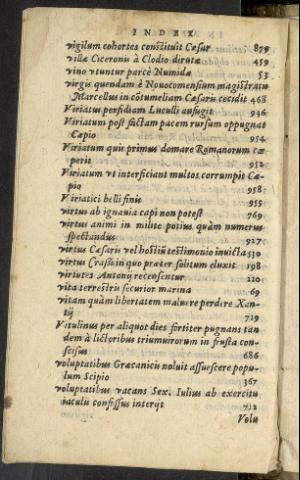 INDEX
vigilum cohortes constituit Cæsar 879
villæ Ciceronis à Clodio dirutæ 459
vino vtuntur parcè Numidæ 53
virgis quendam è Nouocomensium magistratu
Marcellus in cõtumeliam Cæsaris cecidit 468
Viriatus perfidiam Luculli aufugit 946
Viriatum post factam pacem rursum oppugnat
Cæpio 954
Viriatum quis primus domare Romanorum cœ
perit 952
Viriatum vt interficiant multos corrumpit Cæ-
pio 958
Viriatici belli finis 955
virtus ab ignauia capi non potest 769
virtus animi in milite potius quàm numerus
spectandus 927
virtus Cæsaris vel hostiũ testimonio inuicta 530
virtus Crassi in quo præter solitum eluxit 198
virtutes Antonij recensentur 220
vita terrestris securior marina 69
vitam quàm libertatem maluere perdere Xan-
tij 729
Vitulinus per aliquot dies fortiter pugnans tan
dem à lictoribus triumuirorum in frusta con-
scisus 686
voluptatibus Græcanicis noluit assuescere popu-
lum Scipio 367
voluptatibus vacans Sex. Iulius ab exercitu
iaculis confissus interijt 712
Volu